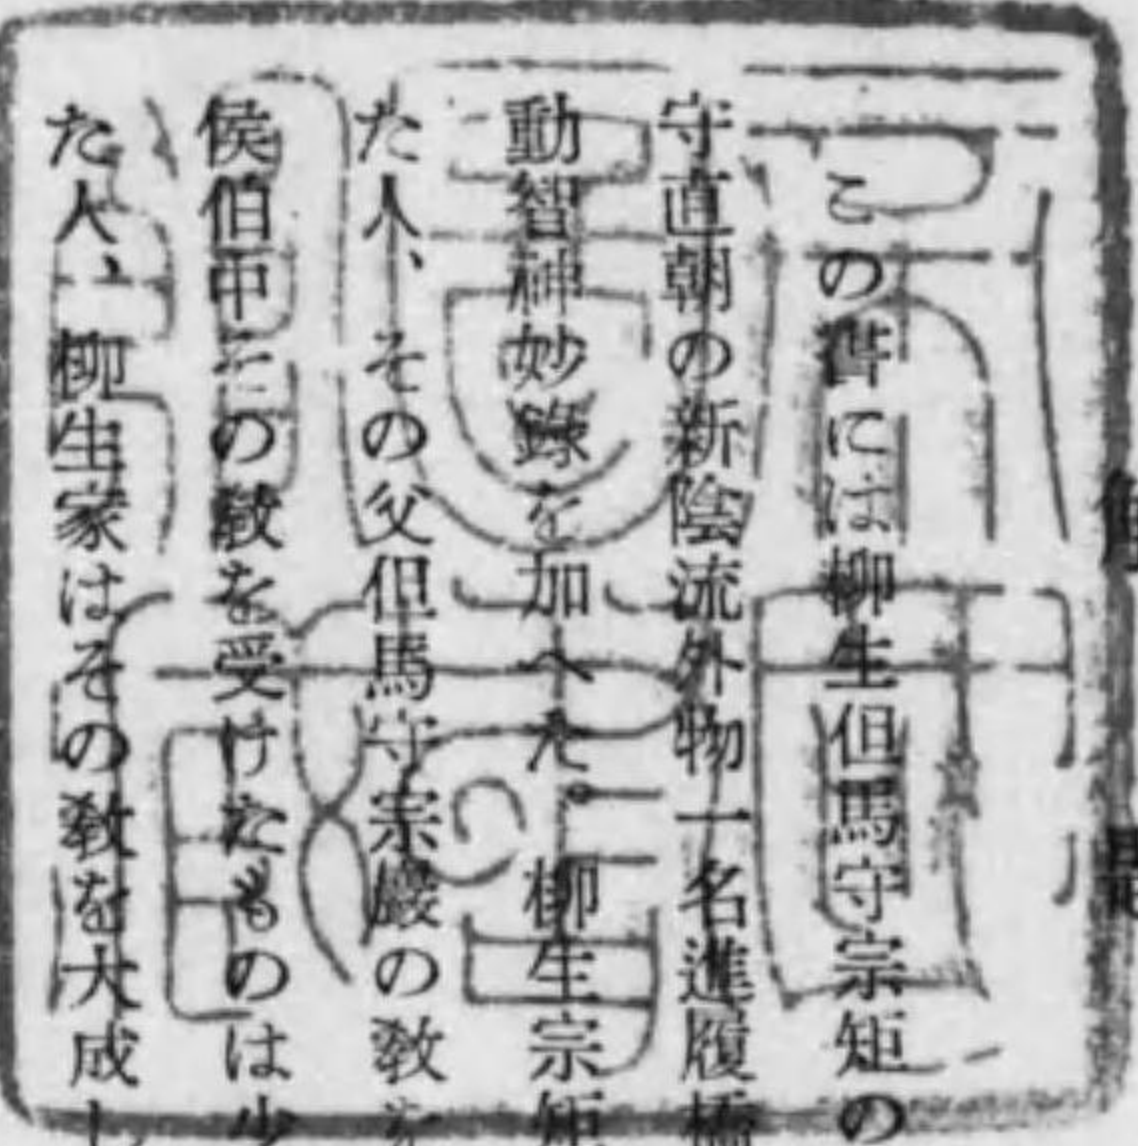 この書には柳生但馬守宗矩の
守直朝の新陰流外物一名進履橋
動智神妙錄を加へた。柳生宗矩
た人、その父但馬守宗嚴の教を
侯伯中その教を受けたものは少
た人、柳生家はその教を大成し